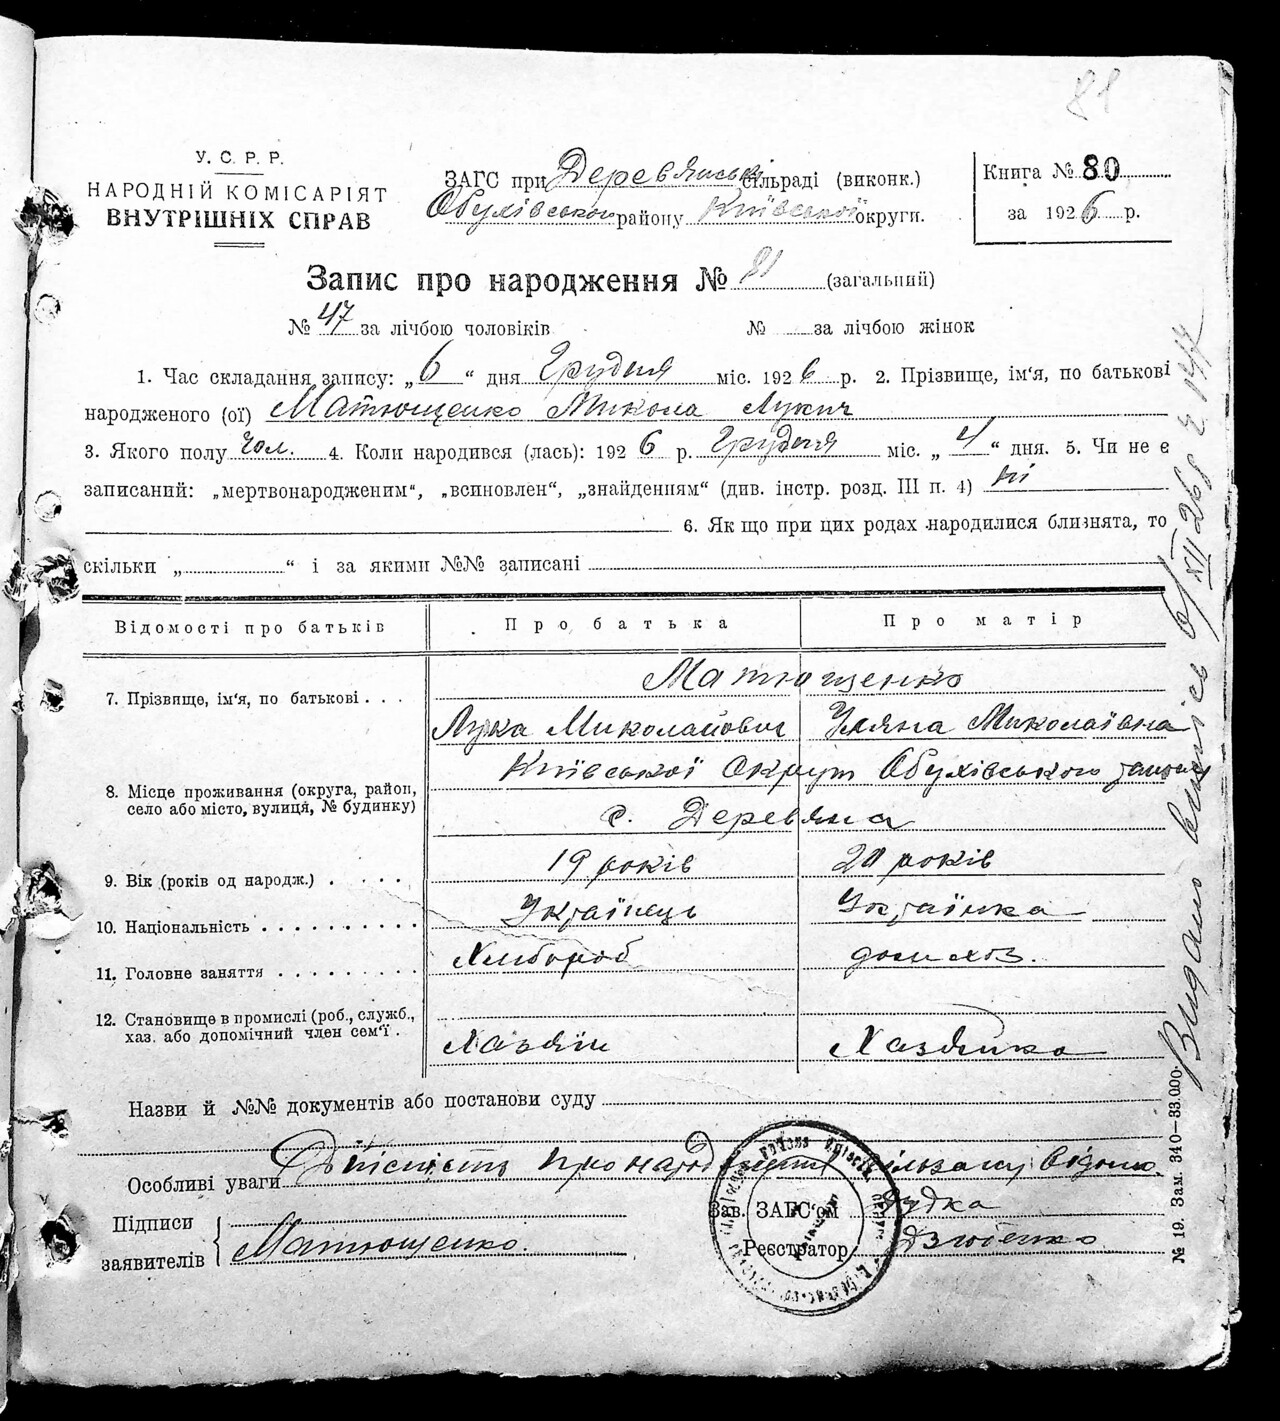 81
У. С. Р. Р.
НАРОДНІЙ КОМІСАРІЯТ
ВНУТРІШНІХ СПРАВ
ЗАГС при Деревянські сільраді (виконк.)
Обухівського району Київської округи.
Книга № 80
за 1926 р.
Запис про народження № 81 (загальний)
№ 47 за лічбою чоловіків № за лічбою жінок
1. Час складання запису: „6“ дня Грудня міс. 1926 р. 2. Прізвище, ім'я, по батькові
народженого (ої) Матющенко Микола Лукич
3. Якого полу чол. 4. Коли народився (лась): 1926 р. Грудня міс. „4“ дня. 5. Чи не є
записаний: „мертвонародженим“, „всиновлен“, „знайденням“ (див. інстр. розд. III п. 4) ні
6. Як що при цих родах народилися близнята, то
скільки „ “ і за якими №№ записані
Відомості про батьків Про батька Про матір
7. Прізвище, ім'я, по батькові . . . Матющенко
Лука Миколайович Уляна Миколаївна
8. Місце проживання (округа, район,
село або місто, вулиця, № будинку)
Київської Округи Обухівського району
с. Деревяна
9. Вік (років од народж.) . . . . 19 років 20 років
10. Національність . . . . . . . . . . Українець Українка
11. Головне заняття . . . . . . . . . Хлибороб дом хоз.
12. Становище в промислі (роб., служб.,
хаз. або допомічний член сем'ї .
Хазяїн Хазяйка
Назви й №№ документів або постанови суду
Особливі уваги Дійсність про народження відомо
Підписи
заявителів
Матющенко.
Зав. ЗАГС'ом Дудка
Реєстратор
№ 19. Зам. 340—33.000.
Видано випись 6/XII 26 р